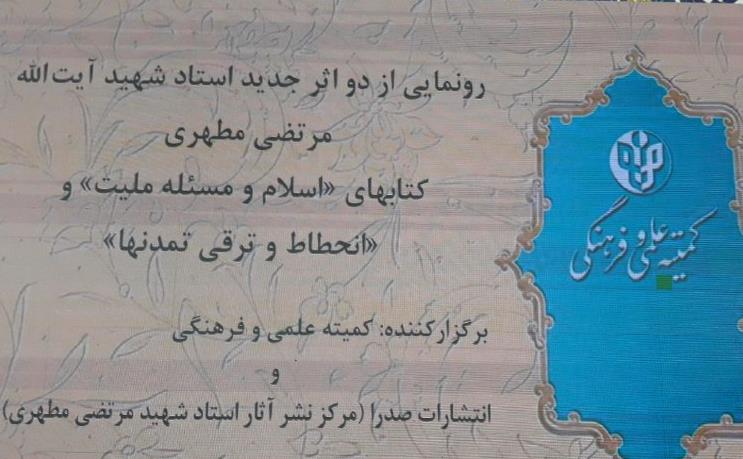 رونمایی از دو اثر جدید استاد شهید آیت‌الله
مرتضی مطهری
کتابهای «اسلام و مسئله ملیت» و
«انحطاط و ترقی تمدنها»
برگزارکننده: کمیته علمی و فرهنگی
و
انتشارات صدرا (مرکز نشر آثار استاد شهید مرتضی مطهری)
کمیته علمی و فرهنگی